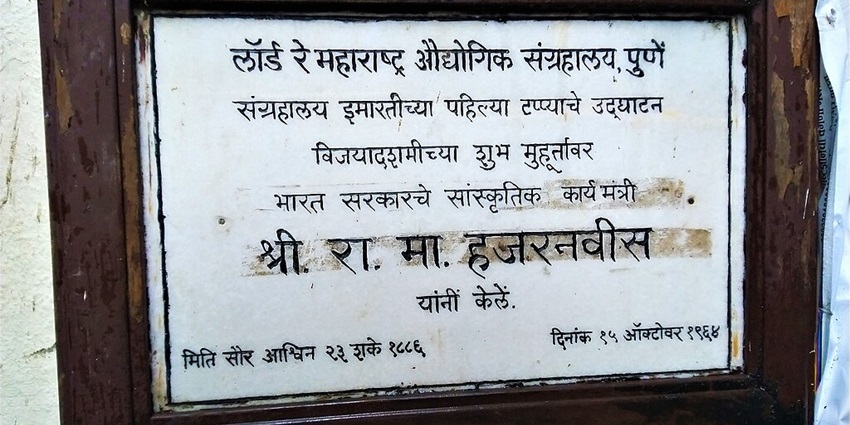 लॉर्ड रे महाराष्ट्र औद्योगिक संग्रहालय, पुणें
संग्रहालय इमारतीच्या पहिल्या टप्प्याचे उद्घाटन
विजयादशमीच्या शुभ मुहूर्तावर
भारत सरकारचे सांस्कृतिक कार्य मंत्री
श्री. रा. मा. हजरनवीस
यांनीं केलें.
मिति सौर आश्विन २३ शके १८८६
दिनांक १५ ऑक्टोवर १९६४